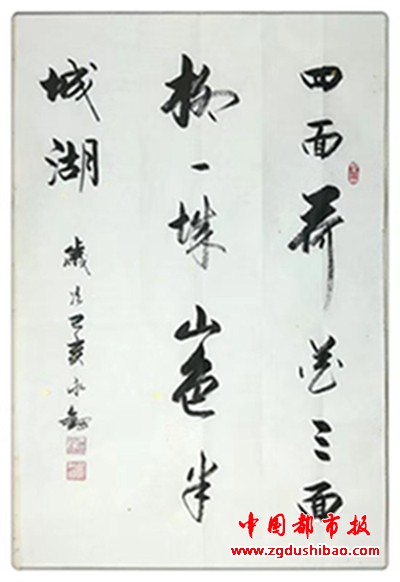 四面荷花三面
柳一城山色半
城湖
歲次己亥永
中国都市报
www.zgdushibao.com